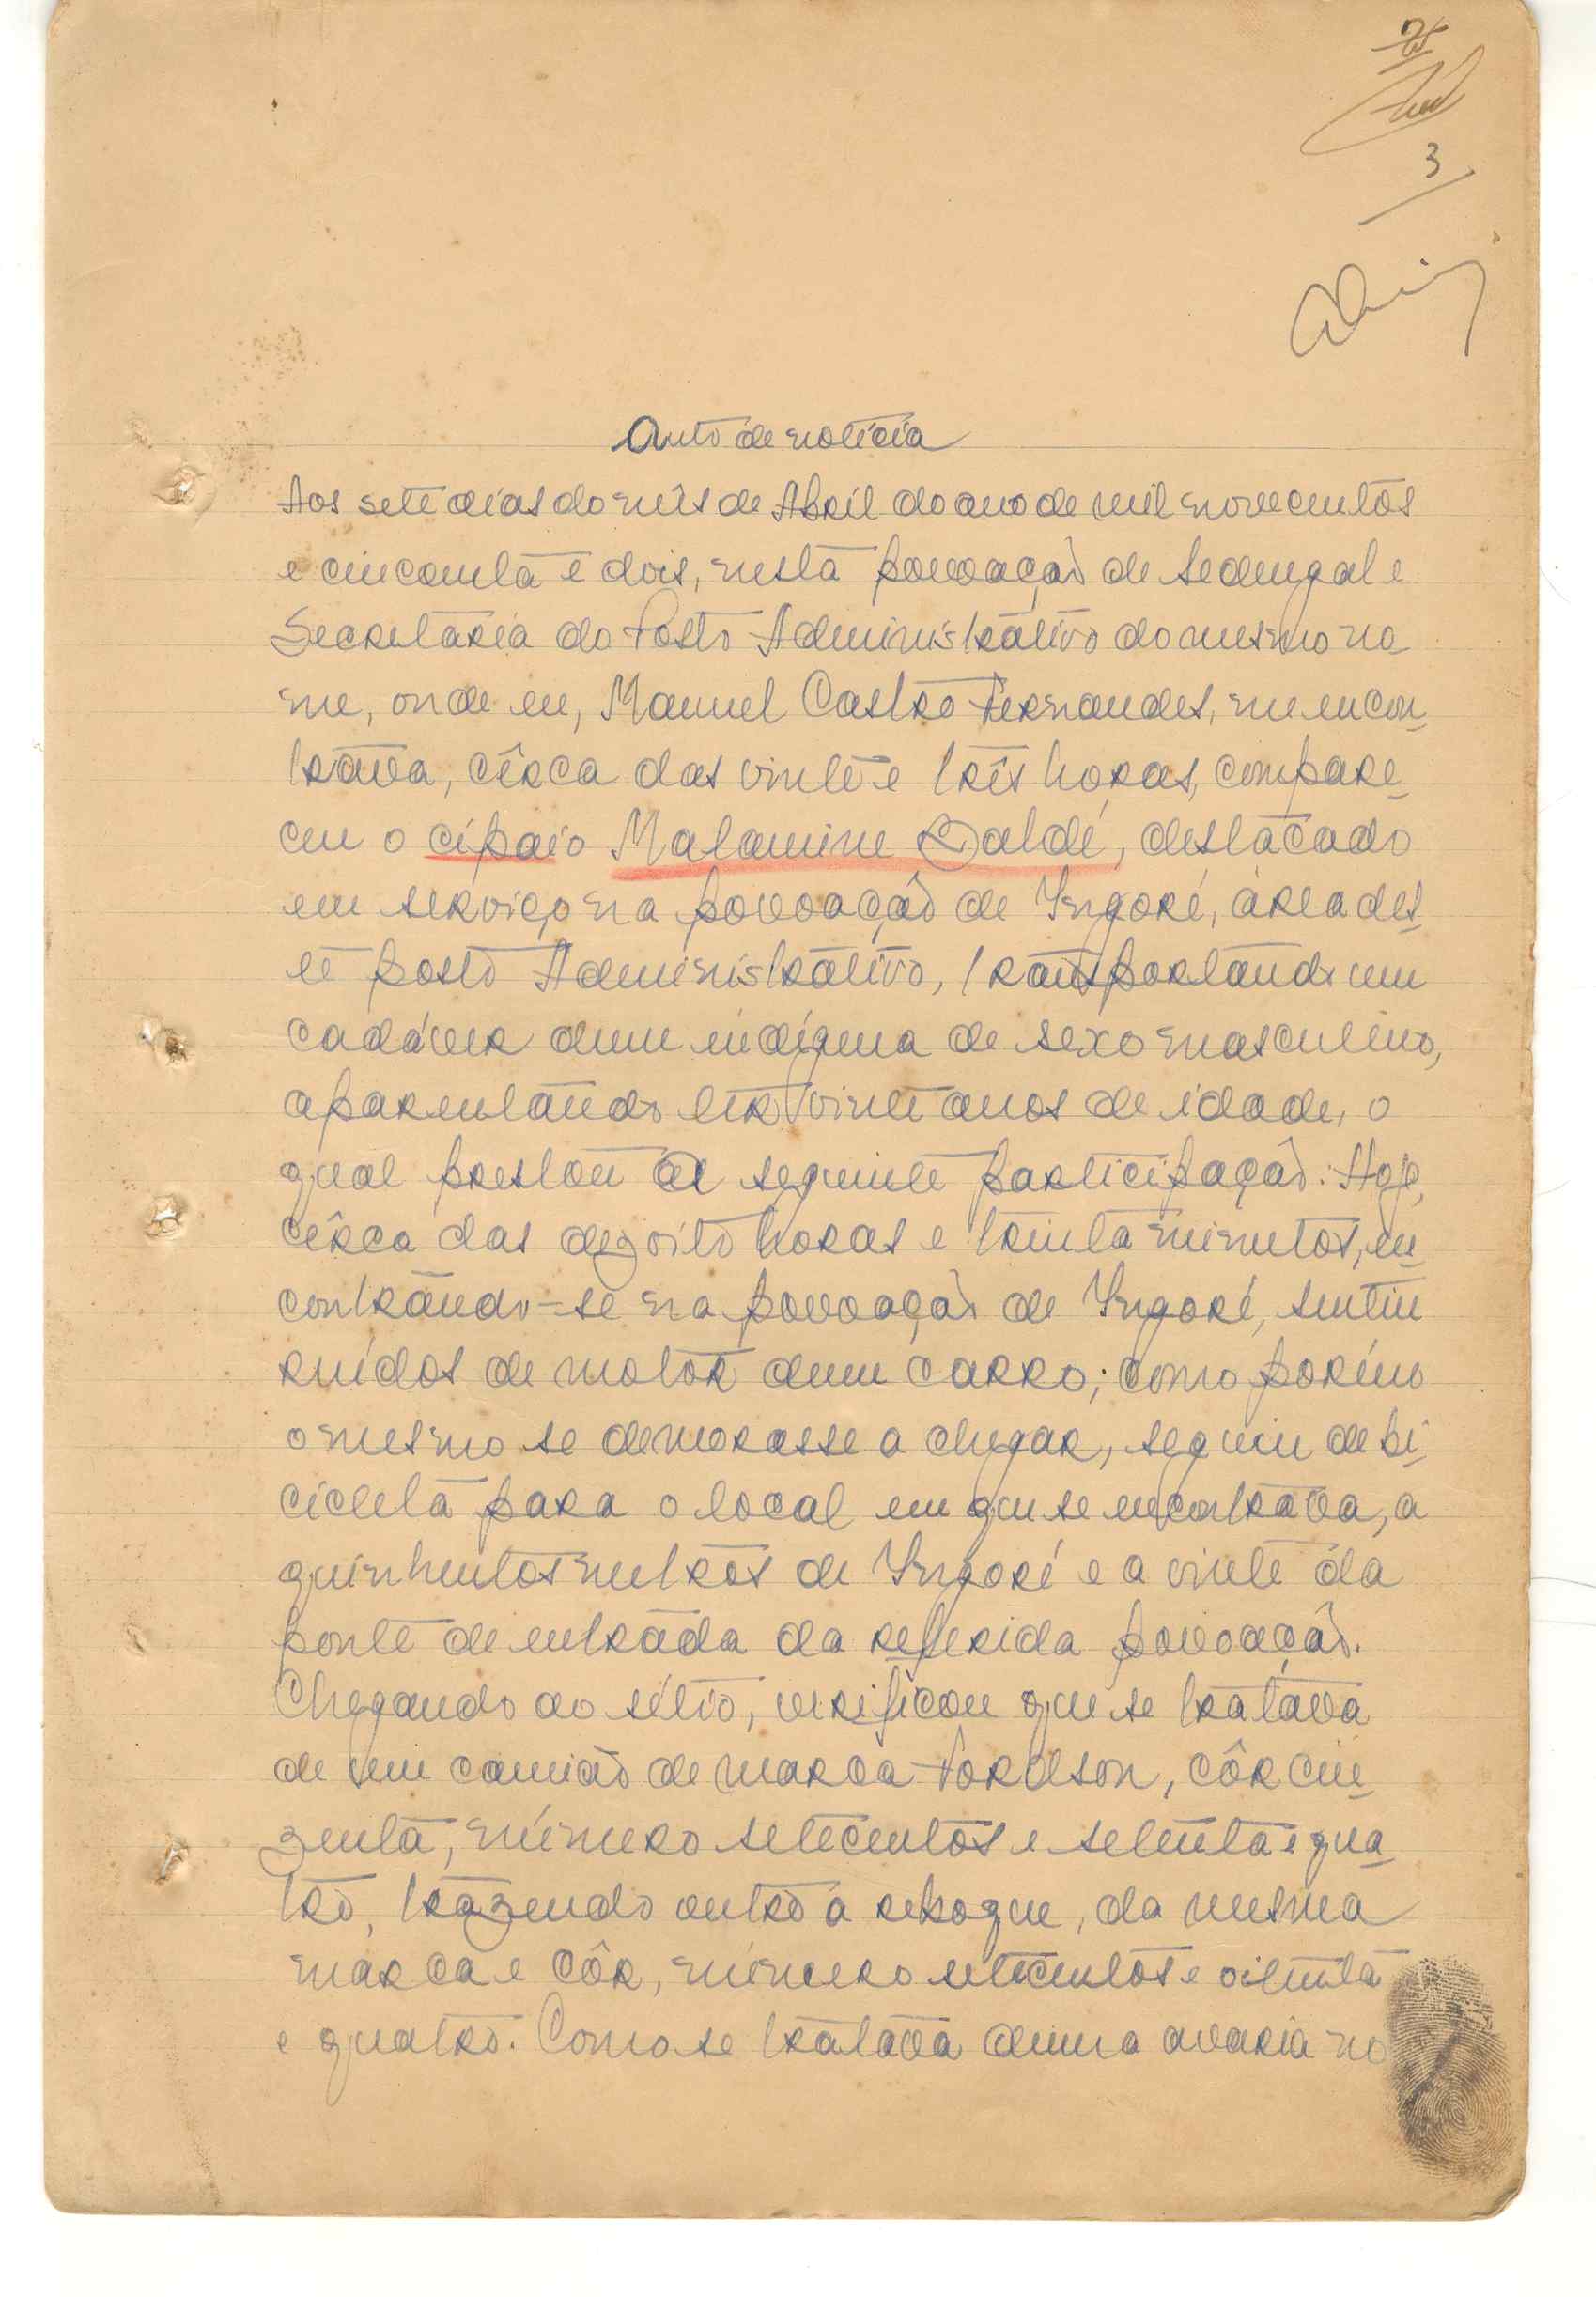 3
Auto de noticia
Aos sete dias do mês de Abril do ano de mil novecentos
e cincoenta e dois, nesta povoação de Sedengal e
Secretaria do Posto Administrativo do mesmo no_
me, onde eu, Manuel Castro Fernandes, me encon_
trava, cêrca das vinte e três horas, compare_
ceu o cipaio Malamine Baldé, destacado
em serviço na povoação de Ingoré, àrea des_
te posto Administrativo, transportando um
cadáver dum indígena de sexo masculino,
aparentando ter vinte anos de idade, o
qual prestou a seguinte participação: Hoje,
cêrca das dezoito horas e trinta minutos, en_
contrando-se na povoação de Ingoré, sentiu
ruidos de motor dum carro; como porém o
o mesmo se demorasse a chegar, seguiu de bi_
cicleta para o local em que se encontrava, a
quinhentos metros de Ingoré e a vinte da
ponte de entrada da referida povoação.
Chegando ao sítio, verificou que se tratava
de um camião de marca Fordson, côr cin_
zenta, número setecentos e setenta e qua_
tro, trazendo outro a reboque, da mesma
marca e côr, número setecentos e oitenta
e quatro. Como se tratava duma avaria no